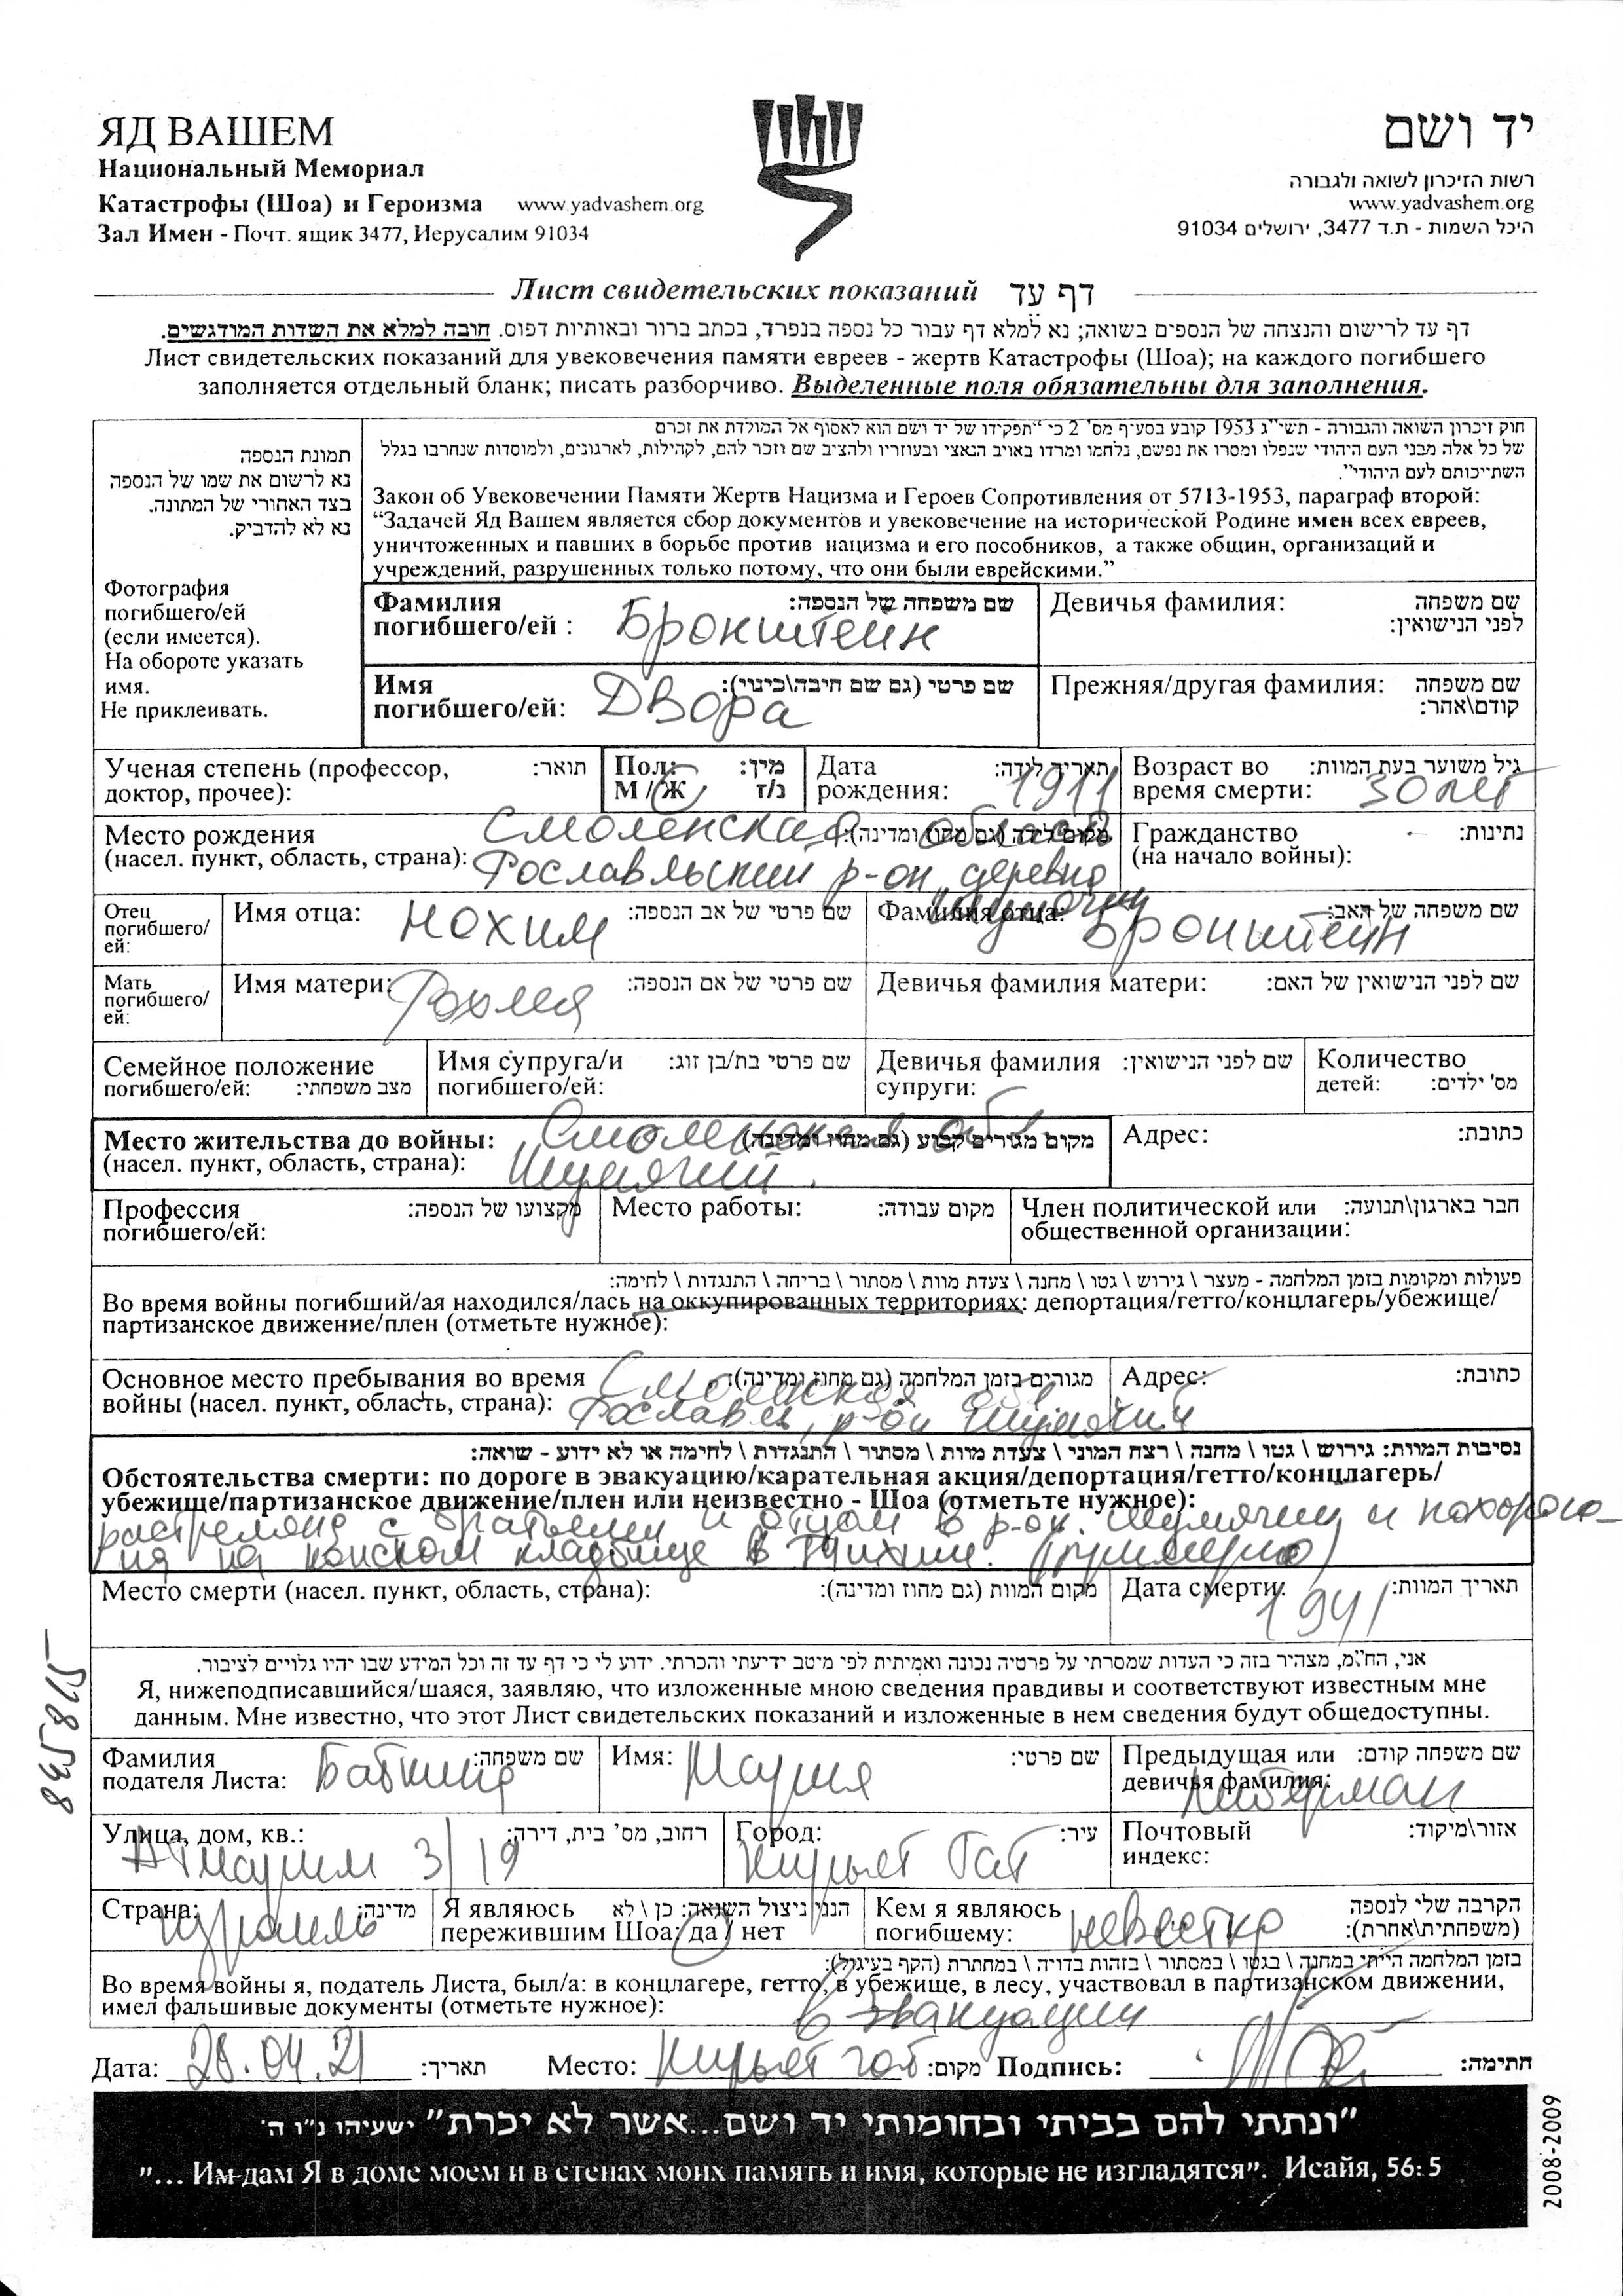 ЯД ВАШЕМ
Национальный Мемориал
Катастрофы (Шоа) и Героизма www.yadvashem.org
Зал Имен - Почт. ящик 3477, Иерусалим 91034
יד ושם
רשות הזיכרון לשואה ולגבורה
www.yadvashem.org
היכל השמות - ת.ד 3477, ירושלים 91034
Лист свидетельских показаний דף עד
דף עד לרישום והנצחה של הנספים בשואה; נא למלא דף עבור כל נספה בנפרד, בכתב ברור ובאותיות דפוס. חובה למלא את השדות המודגשים.
Лист свидетельских показаний для увековечения памяти евреев - жертв Катастрофы (Шоа); на каждого погибшего
заполняется отдельный бланк; писать разборчиво. Выделенные поля обязательны для заполнения.
תמונת הנספה
נא לרשום את שמו של הנספה
בצד האחורי של המתונה.
נא לא להדביק.
Фотография
погибшего/ей
(если имеется).
На обороте указать
имя.
Не приклеивать.
חוק זיכרון השואה והגבורה - תשי"ג 1953 קובע בסעיף מס' 2 כי "תפקידו של יד ושם הוא לאסוף אל המולדת את זכרם
של כל אלה מבני העם היהודי שנפלו ומסרו את נפשם, נלחמו ומרדו באויב הנאצי ובעוזריו ולהציב שם וזכר להם, לקהילות, לארגונים, ולמוסדות שנחרבו בגלל
השתייכותם לעם היהודי".
Закон об Увековечении Памяти Жертв Нацизма и Героев Сопротивления от 5713-1953, параграф второй:
“Задачей Яд Вашем является сбор документов и увековечение на исторической Родине имен всех евреев,
уничтоженных и павших в борьбе против нацизма и его пособников, а также общин, организаций и
учреждений, разрушенных только потому, что они были еврейскими.”
Фамилия שם משפחה של הנספה:
погибшего/ей : Бронштейн
Девичья фамилия: שם משפחה
לפני הנישואין:
Имя שם פרטי (גם שם חיבה\כינוי):
погибшего/ей: Двора
Прежняя/другая фамилия: שם משפחה
קודם\אחר:
Ученая степень (профессор, תואר:
доктор, прочее):
Пол: מין:
М / Ж ז/נ
Дата תאריך לידה:
рождения: 1911
Возраст во גיל משוער בעת המוות:
время смерти: 30 лет
Место рождения מקום לידה (גם מחוז ומדינה): Смоленская область
(насел. пункт, область, страна): Рославльский р-он деревня
Гражданство נתינות:
(на начало войны):
Отец
погибшего/
ей:
Имя отца: Нохим שם פרטי של אב הנספה:
Фамилия отца: Бронштейн שם משפחה של האב:
Мать
погибшего/
ей:
Имя матери: שם פרטי של אם הנספה:
Девичья фамилия матери: שם לפני הנישואין של האם:
Семейное положение
погибшего/ей: מצב משפחתי:
Имя супруга/и שם פרטי בת/בן זוג:
погибшего/ей:
Девичья фамилия שם לפני הנישואין:
супруги:
Количество
детей: מס' ילדים:
Место жительства до войны: מקום מגורים קבוע (גם מחוז ומדינה) Смоленская обл
(насел. пункт, область, страна): Шумячий.
Адрес: כתובת:
Профессия מקצועו של הנספה:
погибшего/ей:
Место работы: מקום עבודה:
Член политической или חבר בארגון\תנועה:
общественной организации:
פעולות ומקומות בזמן המלחמה - מעצר \ גירוש \ גטו \ מחנה \ צעדת מוות \ מסתור \ בריחה \ התנגדות \ לחימה:
Во время войны погибший/ая находился/лась на оккупированных территориях: депортация/гетто/концлагерь/убежище/
партизанское движение/плен (отметьте нужное):
Основное место пребывания во время מגורים בזמן המלחמה (גם מחוז ומדינה): Смоленская обл
войны (насел. пункт, область, страна): Рославль, р-он Шумячий
Адрес: כתובת:
נסיבות המוות: גירוש \ גטו \ מחנה \ רצח המוני \ צעדת מוות \ מסתור \ התנגדות \ לחימה או לא ידוע - שואה:
Обстоятельства смерти: по дороге в эвакуацию/карательная акция/депортация/гетто/концлагерь/
убежище/партизанское движение/плен или неизвестно - Шоа (отметьте нужное):
растреляна с братьями и отцом в р-он. Шумячий и похороне-
на на конском кладбище в (примерно)
Место смерти (насел. пункт, область, страна): מקום המוות (גם מחוז ומדינה):
Дата смерти: 1941 תאריך המוות:
אני, הח"מ, מצהיר בזה כי העדות שמסרתי על פרטיה נכונה ואמיתית לפי מיטב ידיעתי והכרתי. ידוע לי כי דף עד זה וכל המידע שבו יהיו גלויים לציבור.
Я, нижеподписавшийся/шаяся, заявляю, что изложенные мною сведения правдивы и соответствуют известным мне
данным. Мне известно, что этот Лист свидетельских показаний и изложенные в нем сведения будут общедоступны.
Фамилия שם משפחה:
подателя Листа: Бабкина
Имя: Мария שם פרטי:
Предыдущая или שם משפחה קודם:
девичья фамилия: Либерман
Улица, дом, кв.: רחוב, מס' בית, דירה:
3/19
Город: Кирьят Гат עיר:
Почтовый אזור\מיקוד:
индекс:
Страна: Израиль מדינה:
Я являюсь הנני ניצול השואה: כן \ לא
пережившим Шоа: да / нет
Кем я являюсь הקרבה שלי לנספה
погибшему: невестка (משפחתית\אחרת):
בזמן המלחמה הייתי במחנה \ בגטו \ במסתור \ בזהות בדויה \ במחתרת (הקף בעיגול):
Во время войны я, податель Листа, был/а: в концлагере, гетто, в убежище, в лесу, участвовал в партизанском движении,
имел фальшивые документы (отметьте нужное): в эвакуации
Дата: 28.04.21 תאריך: Место: Кирьят гат מקום: Подпись: חתימה:
"ונתתי להם בביתי ובחומותי יד ושם...אשר לא יכרת" ישעיהו נ"ו ה'
”... Им дам Я в доме моем и в стенах моих память и имя, которые не изгладятся”. Исайя, 56:5
8453815
2008-2009